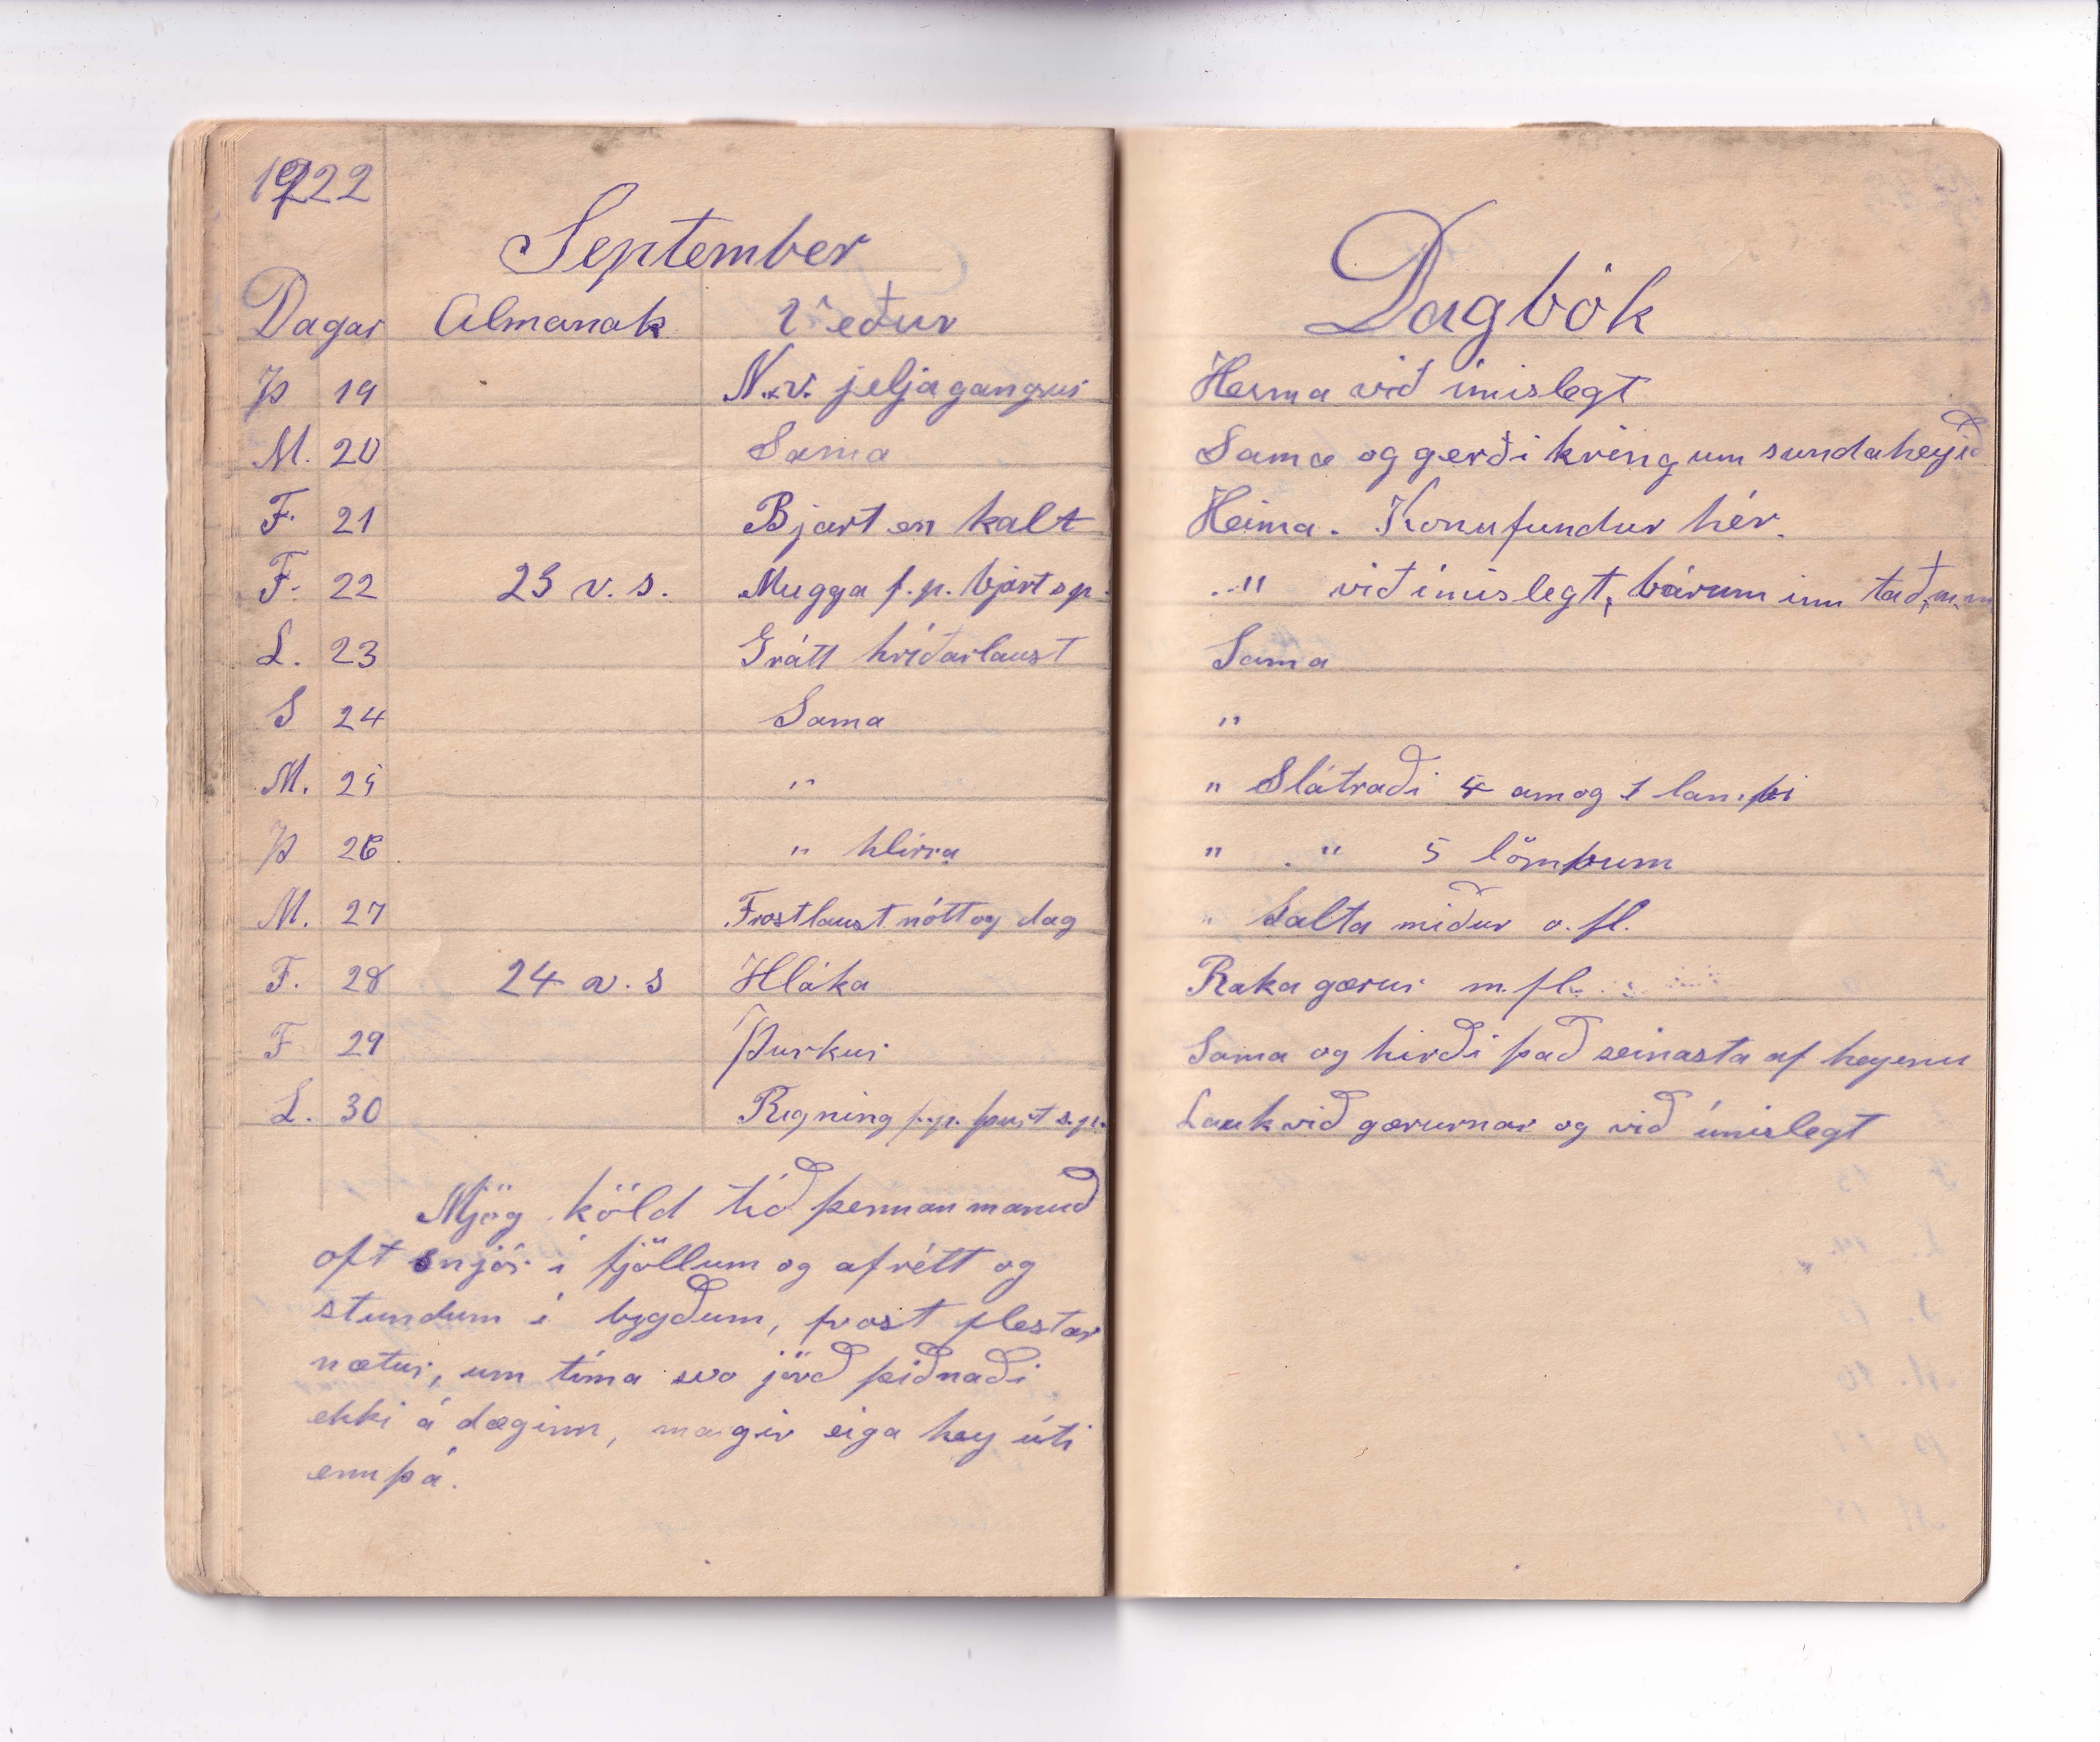 1922
September
Dagar Almanak Veður
Þ 19 N.v. jeljagangur
M. 20 Sama
F. 21 Bjart en kalt
F. 22 23 v. s. Mugga f.p. bjart s p.
L. 23 Grátt hríðarlaust
S 24 Sama
M. 25 "
Þ 26 " hlírra
M. 27 Frostlaust nótt og dag
F. 28 24 v. s Hláka
F 29 Þurkur
L. 30 Rigning f.p. þurt s.p.
Mjög köld tíð þennan manuð
oft snjór í fjöllum og afrétt og
stundum í bygðum, frost flestar
nætur, um tíma svo jörð þiðnaði
ekki á daginn, margir eiga hey úti
ennþá.
Dagbók
Heima við ímislegt
Sama og gerði kring um sundaheyið
Heima. Konufundur hér.
" við ímislegt, bárum inn tað, m.m
Sama
"
" Slátraði 4 am og 1 lambi
" " 5 lömbum
" Salta niður o. fl.
Raka gærur m. fl.
Sama og hirði það seinasta af heyenu
Lauk við gærurnar og við ímislegt